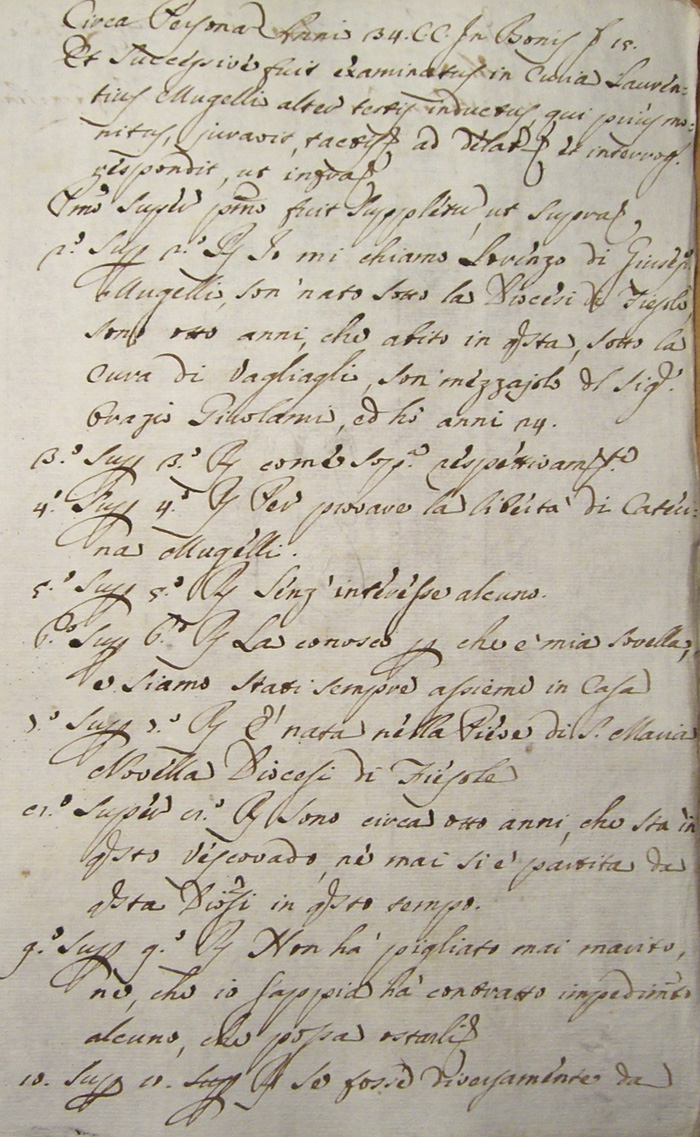 Circa Personā Anni 34. CC. In Bonis f 15.
Et successive fuit examinatus in Curia Lauren=
tius Mugelli alter testis inductus, qui prius mo=
nitus, juravit, tactis, ad delat, et interrog.
respondit, ut infra
Pmō Super pmō fuit suppletū, ut supra,
2.º Sup 2.º R Io mi chiamo Lorenzo di Giusep
Mugelli, son' nato sotto la Diocesi di Fiesole,
sono otto anni, che abito in qsta, sotto la
Cura di Vagliagli, son' mezzajolo dl Sigr.
Orazio Girolami, ed ho anni 24.
3.º Sup 3.º R come sop.ª respettivam.te
4.º Sup 4.º R Per provare la libertà di Cateri=
na Mugelli.
5.º Sup 5.º R Senz' interesse alcuno.
6.º Sup 6.º R La conosco p che è mia sorella,
e siamo stati sempre assieme in Casa
7.º Sup 7.º R È nata nella Pieve di S. Maria
Novella Diocesi di Fiesole
8.º Super 8.º R Sono circa otto anni, che sta in
qsto Vescovado, nè mai si è partita da
qsta Diosi in qsto tempo.
9.º Sup 9.º R Non hà pigliato mai marito,
nè, che io sappia hà contratto impedimto
alcuno, che possa ostarli
10. Sup 10. Sup R Se fosse diversamente da